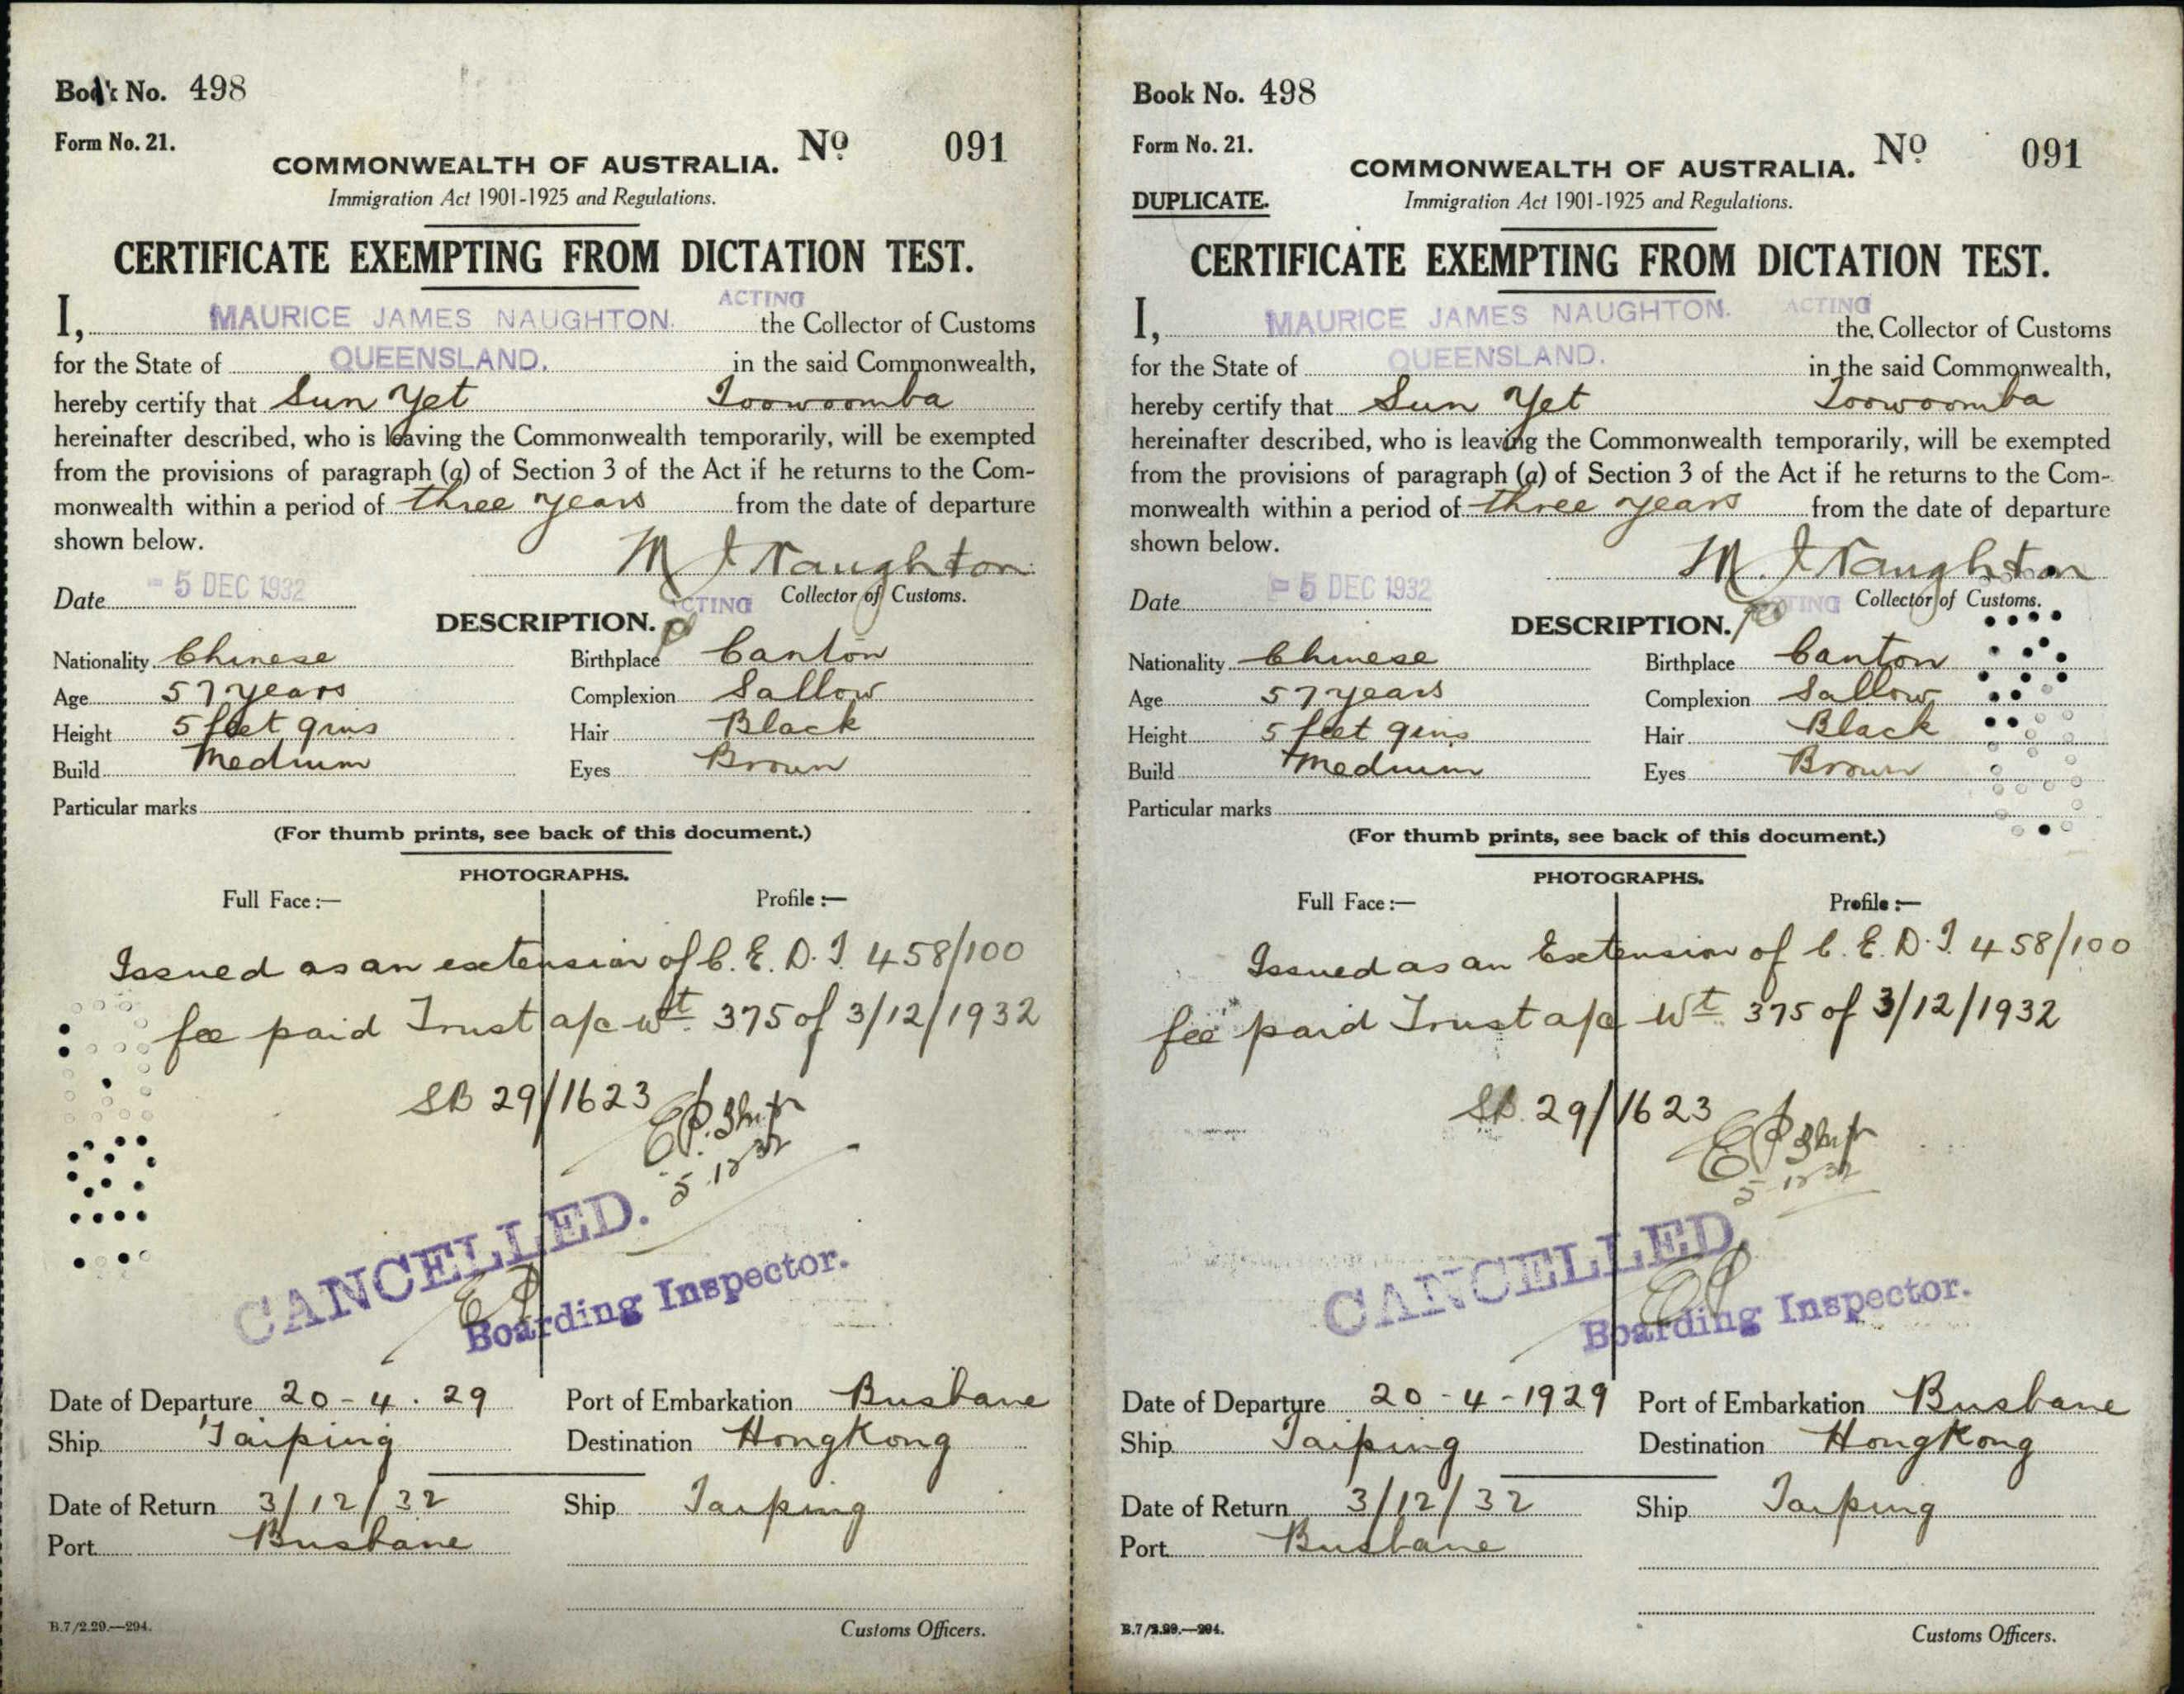 Book No. 498
Form No. 21.
COMMONWEALTH OF AUSTRALIA. No 091
Immigration Act 1901-1925 and Regulations.
CERTIFICATE EXEMPTING FROM DICTATION TEST.
ACTING
I, MAURICE JAMES NAUGHTON. the Collector of Customs
for the State of QUEENSLAND. in the said Commonwealth,
hereby certify that Sun Yet Toowoomba
hereinafter described, who is leaving the Commonwealth temporarily, will be exempted
from the provisions of paragraph (a) of Section 3 of the Act if he returns to the Com-
monwealth within a period of three years from the date of departure
shown below.
M J Naughton
Date - 5 DEC 1932 ACTING Collector of Customs.
DESCRIPTION.
Nationality Chinese Birthplace Canton
Age 57 years Complexion Sallow
Height 5 feet 9 ins Hair Black
Build Medium Eyes Brown
Particular marks
(For thumb prints, see back of this document.)
PHOTOGRAPHS.
Full Face :— Profile :—
Issued as an extension of C.E.D.T. 458/100
fee paid Trust a/c Wt. 375 of 3/12/1932
SB 29/1623
5.12.32
CANCELLED.
Boarding Inspector.
Date of Departure 20-4.29 Port of Embarkation Brisbane
Ship Taiping Destination HongKong
Date of Return 3/12/32 Ship Taiping
Port Brisbane
B.7/2.29.—294. Customs Officers.
Book No. 498
Form No. 21.
COMMONWEALTH OF AUSTRALIA. No 091
DUPLICATE. Immigration Act 1901-1925 and Regulations.
CERTIFICATE EXEMPTING FROM DICTATION TEST.
ACTING
I, MAURICE JAMES NAUGHTON. the Collector of Customs
for the State of QUEENSLAND. in the said Commonwealth,
hereby certify that Sun Yet Toowoomba
hereinafter described, who is leaving the Commonwealth temporarily, will be exempted
from the provisions of paragraph (a) of Section 3 of the Act if he returns to the Com-
monwealth within a period of three years from the date of departure
shown below.
M. J Naughton
Date - 5 DEC 1932 ACTING Collector of Customs.
DESCRIPTION.
Nationality Chinese Birthplace Canton
Age 57 years Complexion Sallow
Height 5 feet 9 ins Hair Black
Build Medium Eyes Brown
Particular marks
(For thumb prints, see back of this document.)
PHOTOGRAPHS.
Full Face :— Profile :—
Issued as an Extension of C.E.D.T. 458/100
fee paid Trust a/c Wt. 375 of 3/12/1932
SB. 29/1623
5-12 32
CANCELLED.
Boarding Inspector.
Date of Departure 20-4-1929 Port of Embarkation Brisbane
Ship Taiping Destination HongKong
Date of Return 3/12/32 Ship Taiping
Port Brisbane
B.7/2.29.—294. Customs Officers.